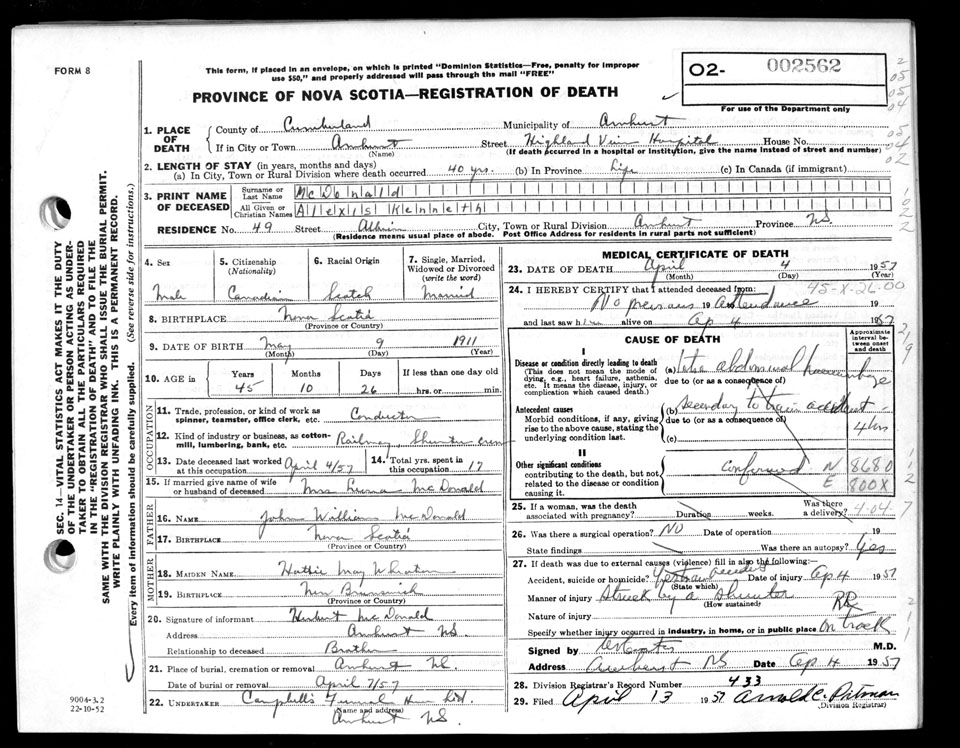 FORM 8
This form, if placed in an envelope, on which is printed "Dominion Statistics—Free, penalty for improper
use $50," and properly addressed will pass through the mail "FREE"
PROVINCE OF NOVA SCOTIA—REGISTRATION OF DEATH
O2- 002562
For use of the Department only
1. PLACE OF DEATH
County of Cumberland Municipality of Amherst
If in City or Town Amherst Street Highland View Hospital House No.
(Name) (If death occurred in a hospital or institution, give the name instead of street and number)
2. LENGTH OF STAY (in years, months and days)
(a) In City, Town or Rural Division where death occurred 40 yrs. (b) In Province Life (c) In Canada (if immigrant)
3. PRINT NAME OF DECEASED
Surname or Last Name McDonald
All Given or Christian Names Alexis Kenneth
RESIDENCE No. 49 Street Albion City, Town or Rural Division Amherst Province N.S.
(Residence means usual place of abode. Post Office Address for residents in rural parts not sufficient)
4. Sex
Male
5. Citizenship (Nationality)
Canadian
6. Racial Origin
Scotch
7. Single, Married, Widowed or Divorced (write the word)
Married
8. BIRTHPLACE Nova Scotia
(Province or Country)
9. DATE OF BIRTH May 9 1911
(Month) (Day) (Year)
10. AGE in Years Months Days If less than one day old
45 10 26 hrs. or min.
OCCUPATION
11. Trade, profession, or kind of work as spinner, teamster, office clerk, etc. Conductor
12. Kind of industry or business, as cotton-mill, lumbering, bank, etc. Railway Shunter crew
13. Date deceased last worked at this occupation April 4/57
14. Total yrs. spent in this occupation 17
15. If married give name of wife or husband of deceased Mrs McDonald
FATHER
16. NAME John William McDonald
17. BIRTHPLACE Nova Scotia
(Province or Country)
MOTHER
18. MAIDEN NAME Hattie May Wheaton
19. BIRTHPLACE New Brunswick
(Province or Country)
20. Signature of informant Herbert McDonald
Address Amherst N.S.
Relationship to deceased Brother
21. Place of burial, cremation or removal Amherst N.S.
Date of burial or removal April 7/57
22. UNDERTAKER Campbell's Funeral Home Ltd.
(Name and address)
Amherst N.S.
MEDICAL CERTIFICATE OF DEATH
23. DATE OF DEATH April 4 1957
(Month) (Day) (Year)
24. I HEREBY CERTIFY that I attended deceased from:
45-X-26-00
No previous 19 Attendance 19
and last saw him alive on Ap 4 1957
CAUSE OF DEATH
Approximate interval between onset and death
I
Disease or condition directly leading to death
(This does not mean the mode of dying, e.g., heart failure, asthenia, etc. It means the disease, injury, or complication which caused death.)
(a) Intra abdominal haemorrhage
due to (or as a consequence of)
Antecedent causes
Morbid conditions, if any, giving rise to the above cause, stating the underlying condition last.
(b) secondary to train accident
due to (or as a consequence of) 4 hrs
(c)
II
Other significant conditions
contributing to the death, but not related to the disease or condition causing it.
confirmed N 8680
E 800X
25. If a woman, was the death associated with pregnancy? Duration weeks. Was there a delivery?
4-04
26. Was there a surgical operation? NO Date of operation 19
State findings Was there an autopsy? Yes
27. If death was due to external causes (violence) fill in also the following:—
Accident, suicide or homicide? accident Date of injury Ap 4 1957
(State which)
Manner of injury Struck by a Shunter
(How sustained)
RR
Nature of injury
Specify whether injury occurred in industry, in home, or in public place On track
Signed by M.D.
Address Amherst NS Date Ap 4 1957
28. Division Registrar's Record Number 433
29. Filed April 13 1957 Arnold C. Patman
(Division Registrar)
SEC. 14—VITAL STATISTICS ACT MAKES IT THE DUTY
OF THE UNDERTAKER OR PERSON ACTING AS UNDER-
TAKER TO OBTAIN ALL THE PARTICULARS REQUIRED
IN THE "REGISTRATION OF DEATH" AND TO FILE THE
SAME WITH THE DIVISION REGISTRAR WHO SHALL ISSUE THE BURIAL PERMIT.
WRITE PLAINLY WITH UNFADING INK. THIS IS A PERMANENT RECORD.
Every item of information should be carefully supplied. (See reverse side for instructions.)
9004-3.2
22-10-52